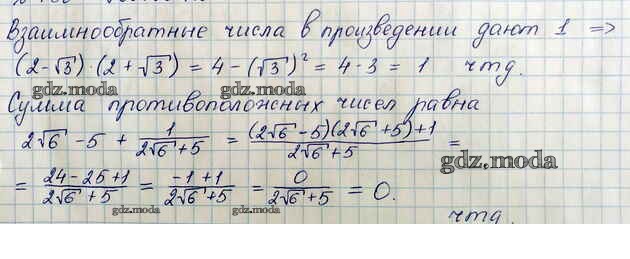 Взаимнообратные числа в произведении дают 1 =>
(2-√3)·(2+√3) = 4-(√3)² = 4-3 = 1 чтд.
gdz.moda gdz.moda
Сумма противоположных чисел равна
2√6 - 5 + 1/(2√6+5) = ((2√6-5)(2√6+5)+1)/(2√6+5) =
gdz.moda
= (24-25+1)/(2√6+5) = (-1+1)/(2√6+5) = 0/(2√6+5) = 0.
gdz.moda gdz.moda
чтд.